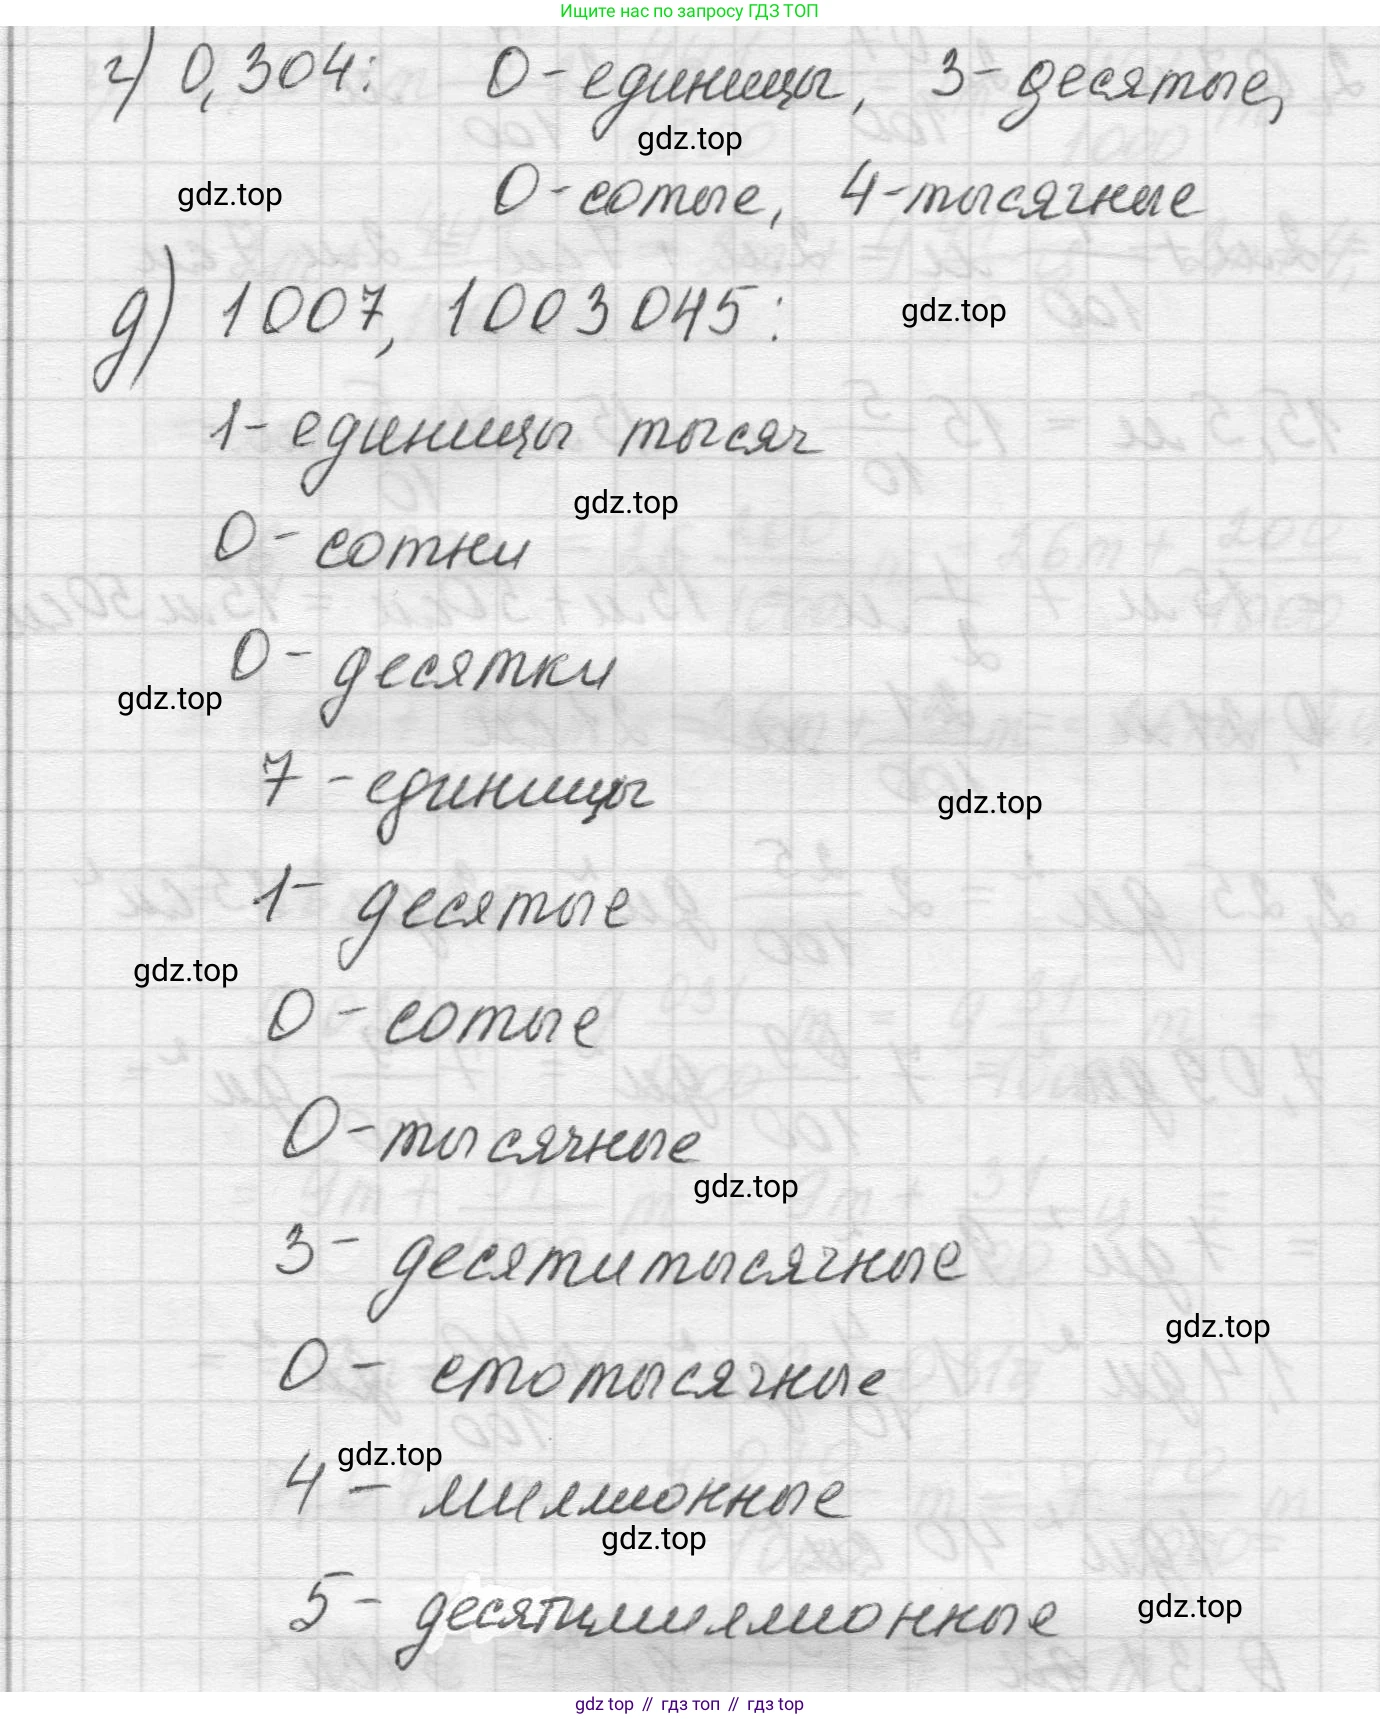 Ищите нас по запросу ГДЗ ТОП
г) 0,304: 0 - единицы, 3 - десятые,
gdz.top
gdz.top
0 - сотые, 4 - тысячные
д) 1007, 1003045:
gdz.top
1 - единицы тысяч
gdz.top
0 - сотни
0 - десятки
gdz.top
7 - единицы
gdz.top
1 - десятые
gdz.top
0 - сотые
0 - тысячные
gdz.top
3 - десятитысячные
gdz.top
0 - стотысячные
gdz.top
4 - миллионные
gdz.top
5 - десятимиллионные
gdz.top
gdz top // гдз топ // гдз top